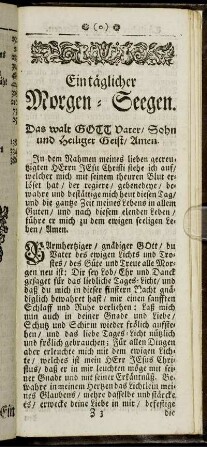 (o)
Ein täglicher
Morgen-Seegen.
Das walt GOTT Vater/ Sohn
und Heiliger Geist/ Amen.
In dem Nahmen meines lieben gecreu-
tzigten HErrn JEsu Christi stehe ich auf/
welcher mich mit seinem theuren Blut er-
löset hat/ der regiere/ gebenedeye/ be-
wahre und bestätige mich heut diesen Tag/
und die gantze Zeit meines Lebens in allem
Guten/ und nach diesem elenden Leben/
führe er mich zu dem ewigen seeligen Le-
ben/ Amen.
BArmhertziger/ gnädiger GOtt/ du
Vater des ewigen Lichts und Tro-
stes/ des Güte und Treue alle Mor-
gen neu ist: Dir sey Lob/ Ehr und Danck
gesaget für das liebliche Tages-Licht/ und
daß du mich in dieser finstern Nacht gnä-
diglich bewahret hast/ mir einen sanfften
Schlaff und Ruhe verliehen: Laß mich
nun auch in deiner Gnade und Liebe/
Schutz und Schirm wieder frölich aufste-
hen/ und das liebe Tages-Licht nützlich
und frölich gebrauchen: Für allen Dingen
aber erleuchte mich mit dem ewigen Lich-
te/ welches ist mein HErr JEsus Chri-
stus/ daß er in mir leuchten möge mit sei-
ner Gnade und mit seiner Erkäntnüß. Be-
wahre in meinem Hertzen das Lichtlein mei-
nes Glaubens/ mehre dasselbe und stärcke
es/ erwecke deine Liebe in mir/ befestige
Z 3 die
Ein